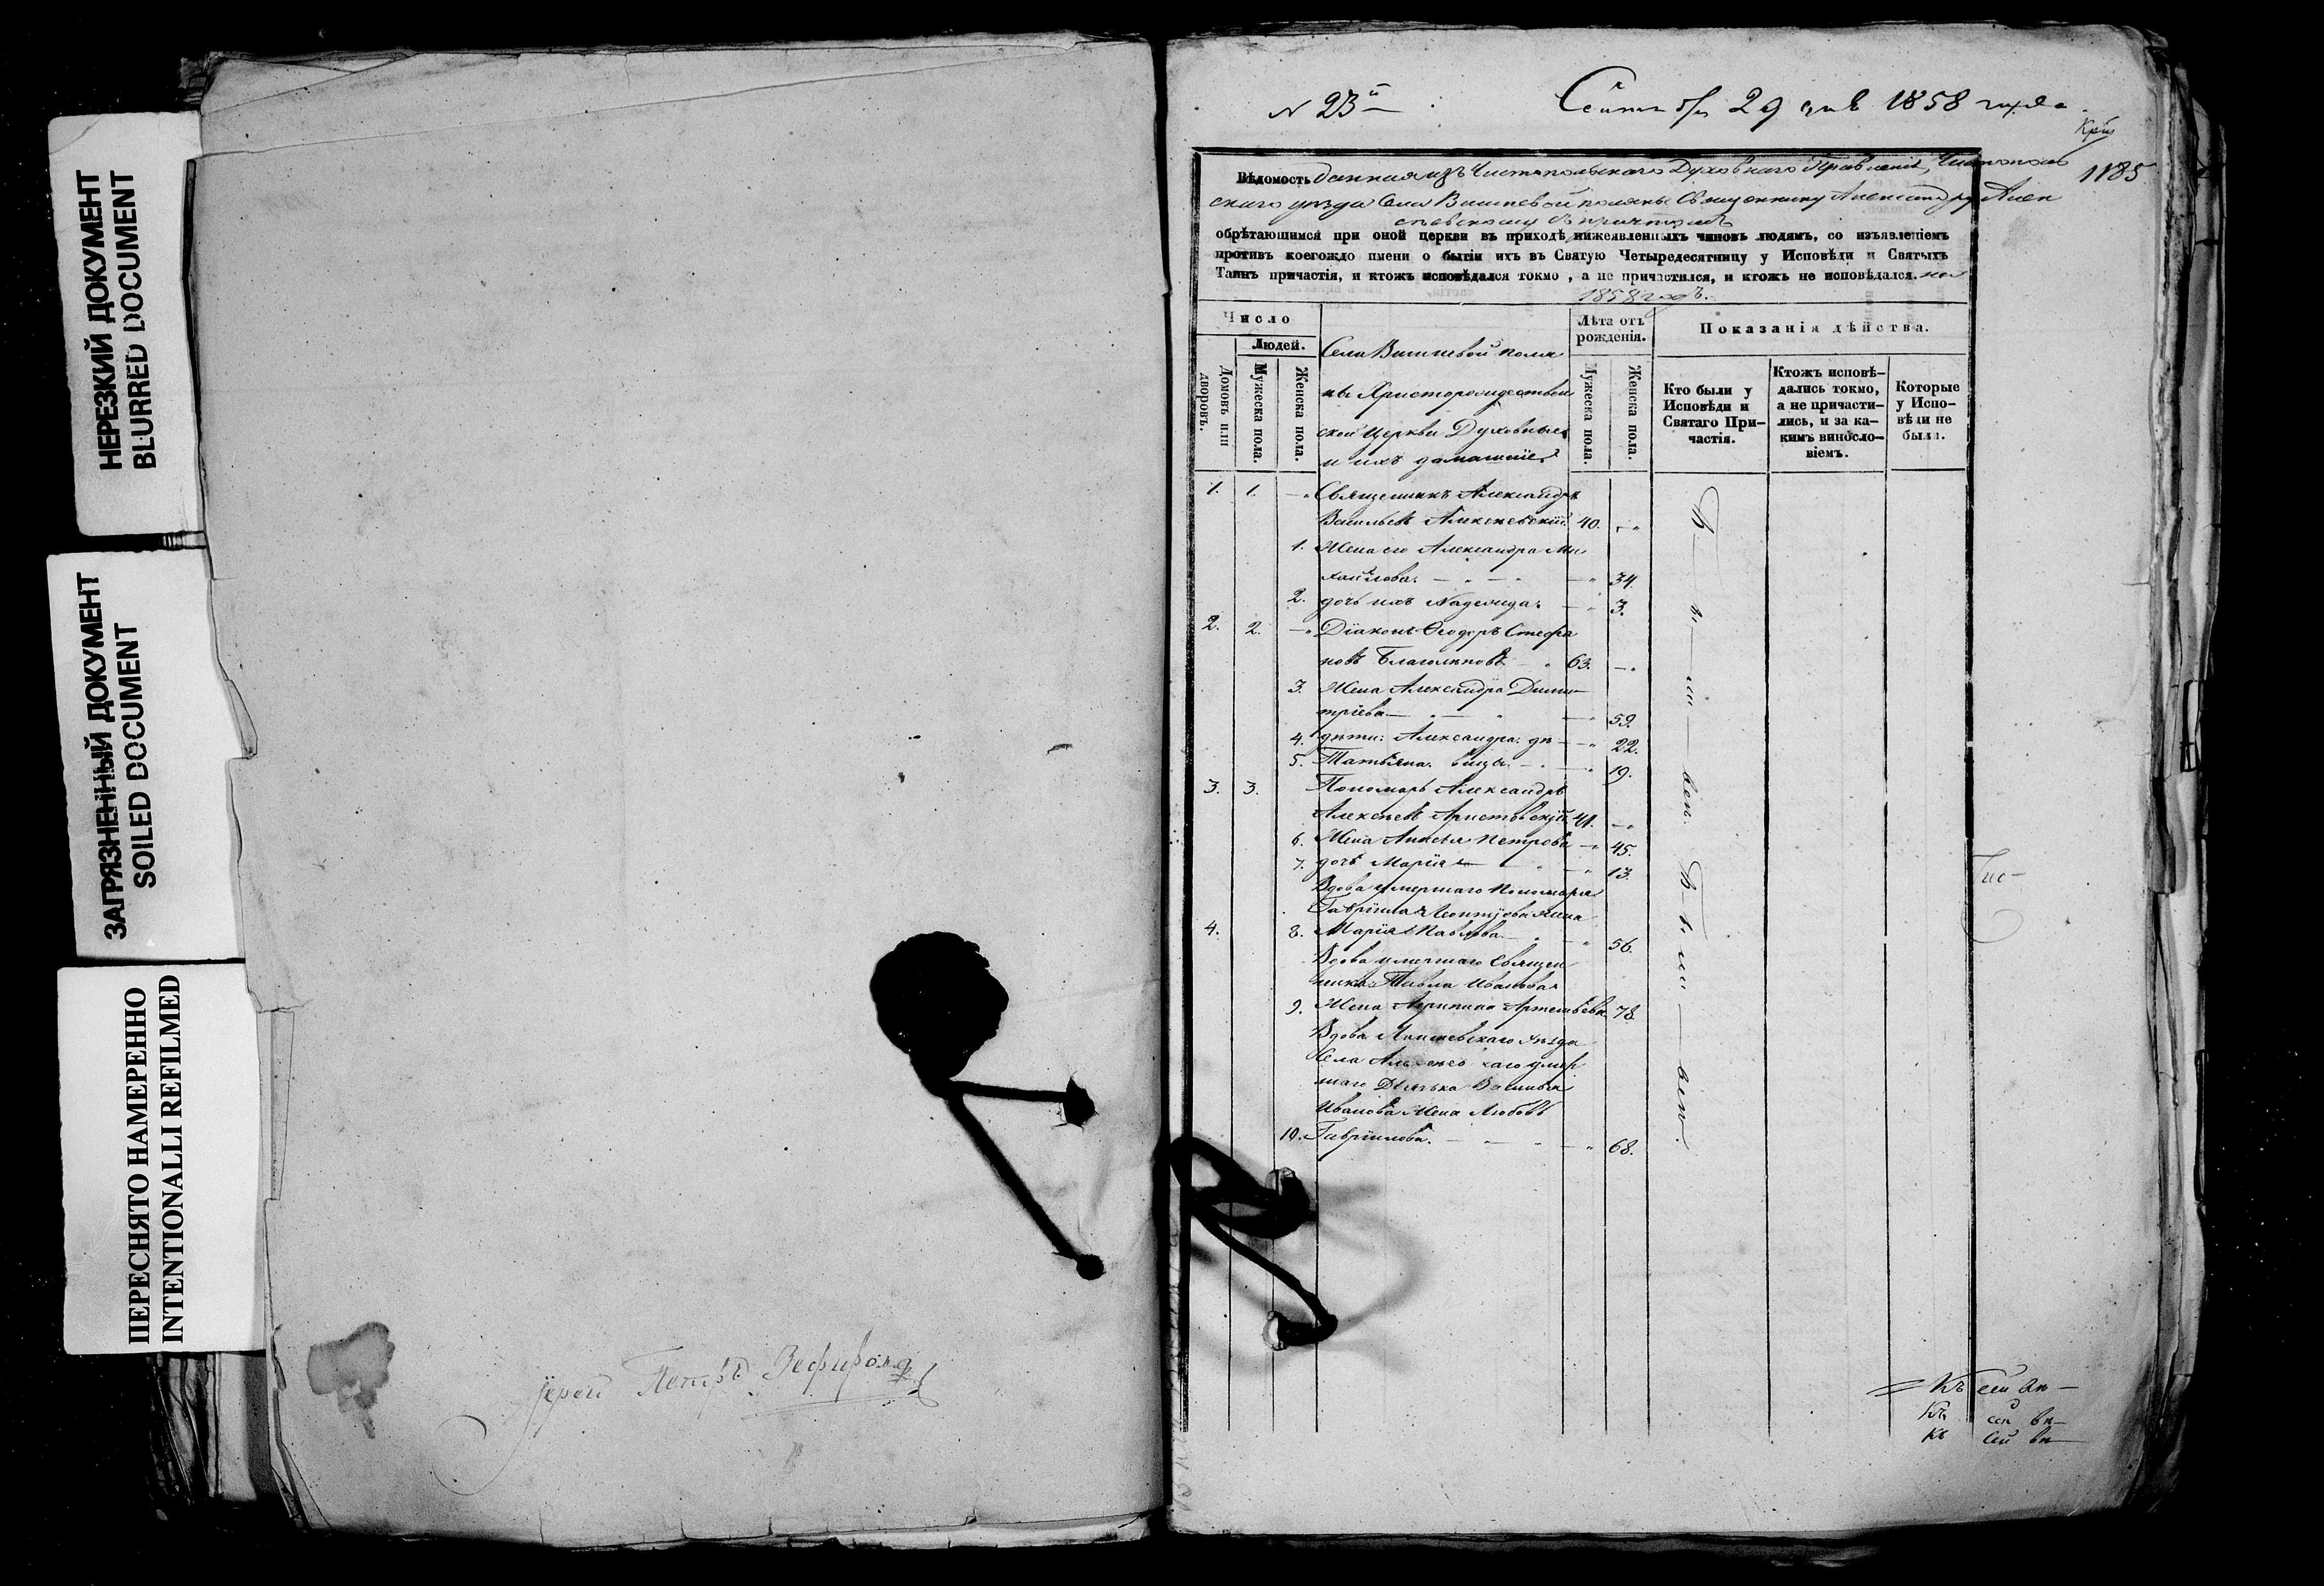 НЕРЕЗКИЙ ДОКУМЕНТ
BLURRED DOCUMENT
ЗАГРЯЗНЕННЫЙ ДОКУМЕНТ
SOILED DOCUMENT
ПЕРЕСНЯТО НАМЕРЕННО
INTENTIONALLI REFILMED
Іерей Петръ
N 23й
Сентября 29 дня 1858 года
1185
Вѣдомость данная изъ Чистопольскаго Духовнаго Правленія, Чистополь
скаго уѣзда Села Вишневой поляны Священнику Александру Алек
сѣевскому съ причтомъ
обрѣтающимся при оной церкви въ приходѣ нижеявленныхъ чиновъ людямъ, со изъявленіемъ
противъ коегождо имени о бытіи ихъ въ Святую Четыредесятницу у Исповѣди и Святыхъ
Таинъ причастія, и ктожъ исповѣдался токмо, а не причастился, и ктожъ не исповѣдался. на
1858 годъ.
Число
Людей.
Домовъ или дворовъ.
Мужеска пола.
Женска пола.
Села Вишневой поля
ны Христорождествен
ской Церкви Духовные
и ихъ домашніе
Лѣта отъ рожденія.
Мужеска пола.
Женска пола.
Показанія дѣйства.
Кто были у Исповѣди и Святаго При-
частія.
Ктожъ исповѣ-
дались токмо, а не причасти-
лись, и за ка-
кимъ винсло-
віемъ.
Которые у Испо-
вѣди не были.
1. 1. Священникъ Александръ
Васильевъ Алексѣевскій 40.
1. Жена его Александра Ми
хайлова 34.
2. дочь ихъ Надежда 3.
2. 2. Діаконъ Ѳеодоръ Стефа
новъ Благолѣповъ 63.
3. Жена Александра Дими
тріева 59.
4. дѣти: Александра дѣ 22.
5. Татьяна вицы 19.
3. 3. Пономарь Александръ
Алексѣевъ Аристовскій 41.
6. Жена Петрова 45.
7. дочь Марія 13.
Вдова умершаго Пономаря
Гавріила Леонтіева жена
4. 8. Марія Павлова 56.
Вдова умершаго Священ
ника Павла Иванова
9. Жена Агрипина Артемьева 78.
Вдова Лаишевскаго уѣзда
Села умер
шаго Дьячька Василья
Иванова Жена Любовь
10. Гавріилова 68.